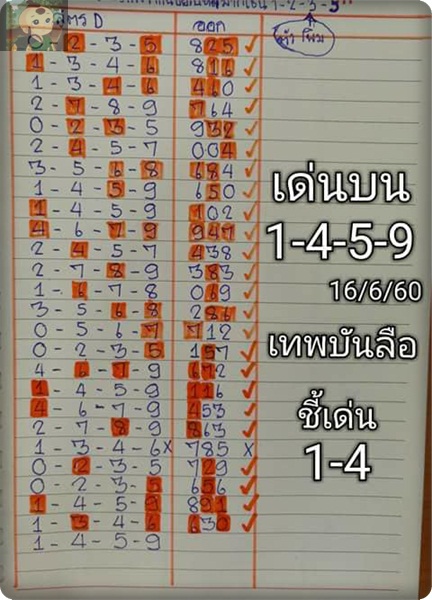 1-2-3-5"
สูตร D ออก
ตัวโผม
0-2-3-5 825 ✓
1-3-4-6 816 ✓
1-3-4-6 460 ✓
2-7-8-9 764 ✓
0-2-3-5 932 ✓
2-4-5-7 004 ✓
3-5-6-8 684 ✓
1-4-5-9 650 ✓
1-4-5-9 102 ✓
4-6-7-9 947 ✓
2-4-5-7 438 ✓
2-7-8-9 383 ✓
1-6-7-8 069 ✓
3-5-6-8 286 ✓
0-5-6-7 712 ✓
0-2-3-5 157 ✓
4-6-7-9 672 ✓
1-4-5-9 116 ✓
4-6-7-9 453 ✓
2-7-8-9 863 ✓
1-3-4-6x 785 x
0-2-3-5 729 ✓
0-2-3-5 656 ✓
1-4-5-9 891 ✓
1-3-4-6 630 ✓
1-4-5-9
เด่นบน
1-4-5-9
16/6/60
เทพบันลือ
ชี้เด่น
1-4